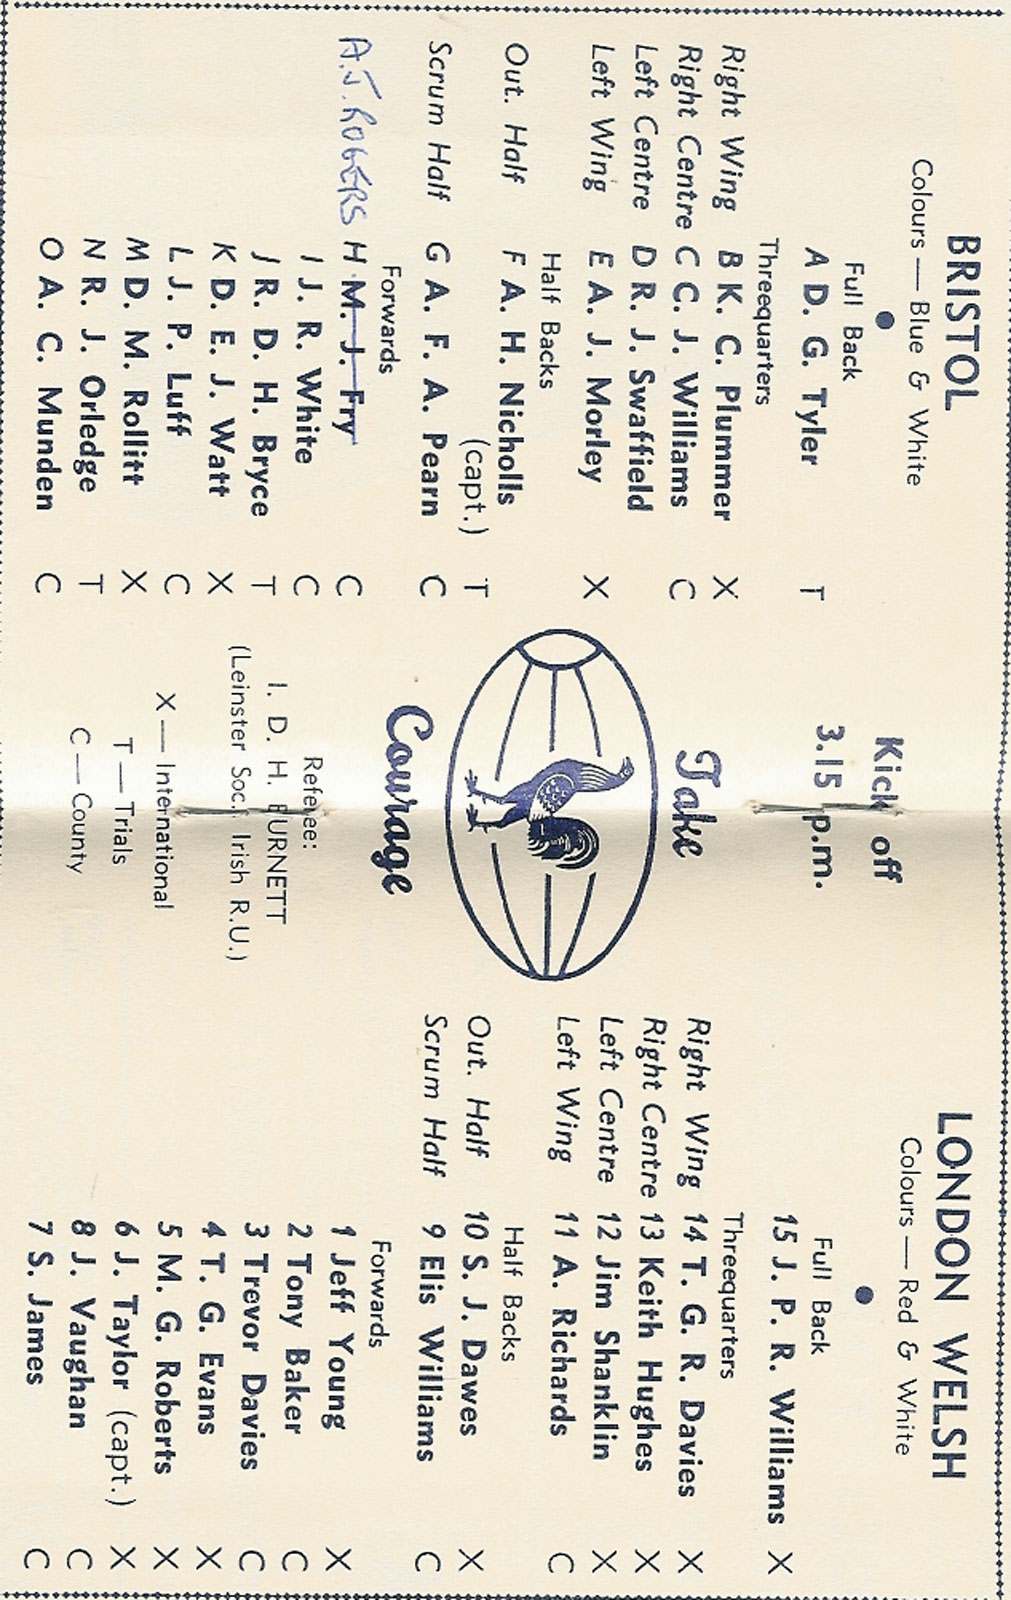 BRISTOL
Colours — Blue & White
Full Back
A D. G. Tyler T
Threequarters
Right Wing B K. C. Plummer X
Right Centre C C. J. Williams C
Left Centre D R. J. Swaffield
Left Wing E A. J. Morley X
Half Backs
Out. Half F A. H. Nicholls
(capt.) T
Scrum Half G A. F. A. Pearn C
Forwards
A.J. ROGERS H M. J. Fry C
I J. R. White C
J R. D. H. Bryce T
K D. E. J. Watt X
L J. P. Luff C
M D. M. Rollitt X
N R. J. Orledge T
O A. C. Munden C
Kick off
3.15 p.m.
Take
Courage
Referee:
I. D. H. BURNETT
(Leinster Soc., Irish R.U.)
X — International
T — Trials
C — County
LONDON WELSH
Colours — Red & White
Full Back
15 J. P. R. Williams X
Threequarters
Right Wing 14 T. G. R. Davies X
Right Centre 13 Keith Hughes X
Left Centre 12 Jim Shanklin X
Left Wing 11 A. Richards C
Half Backs
Out. Half 10 S. J. Dawes X
Scrum Half 9 Elis Williams C
Forwards
1 Jeff Young X
2 Tony Baker C
3 Trevor Davies C
4 T. G. Evans X
5 M. G. Roberts X
6 J. Taylor (capt.) X
8 J. Vaughan C
7 S. James C